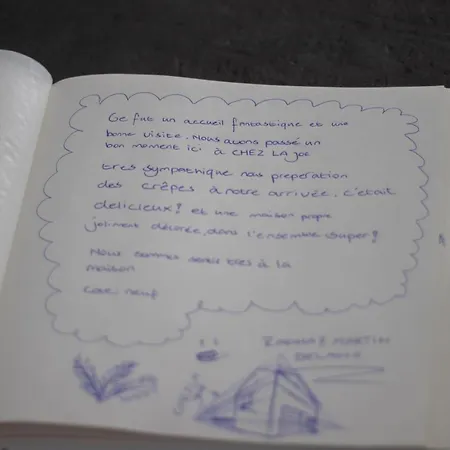 Ce fut un accueil fantastique et une
bonne visite. Nous avons passé un
bon moment ici à CHEZ LA JOE
tres sympathique nos preperation
des crêpes à notre arrivée, c'était
delicieux! et une maison propre
joliment décorée, dans l'ensemble super!
Nous sommes sentir très à la
maison
MARTIN